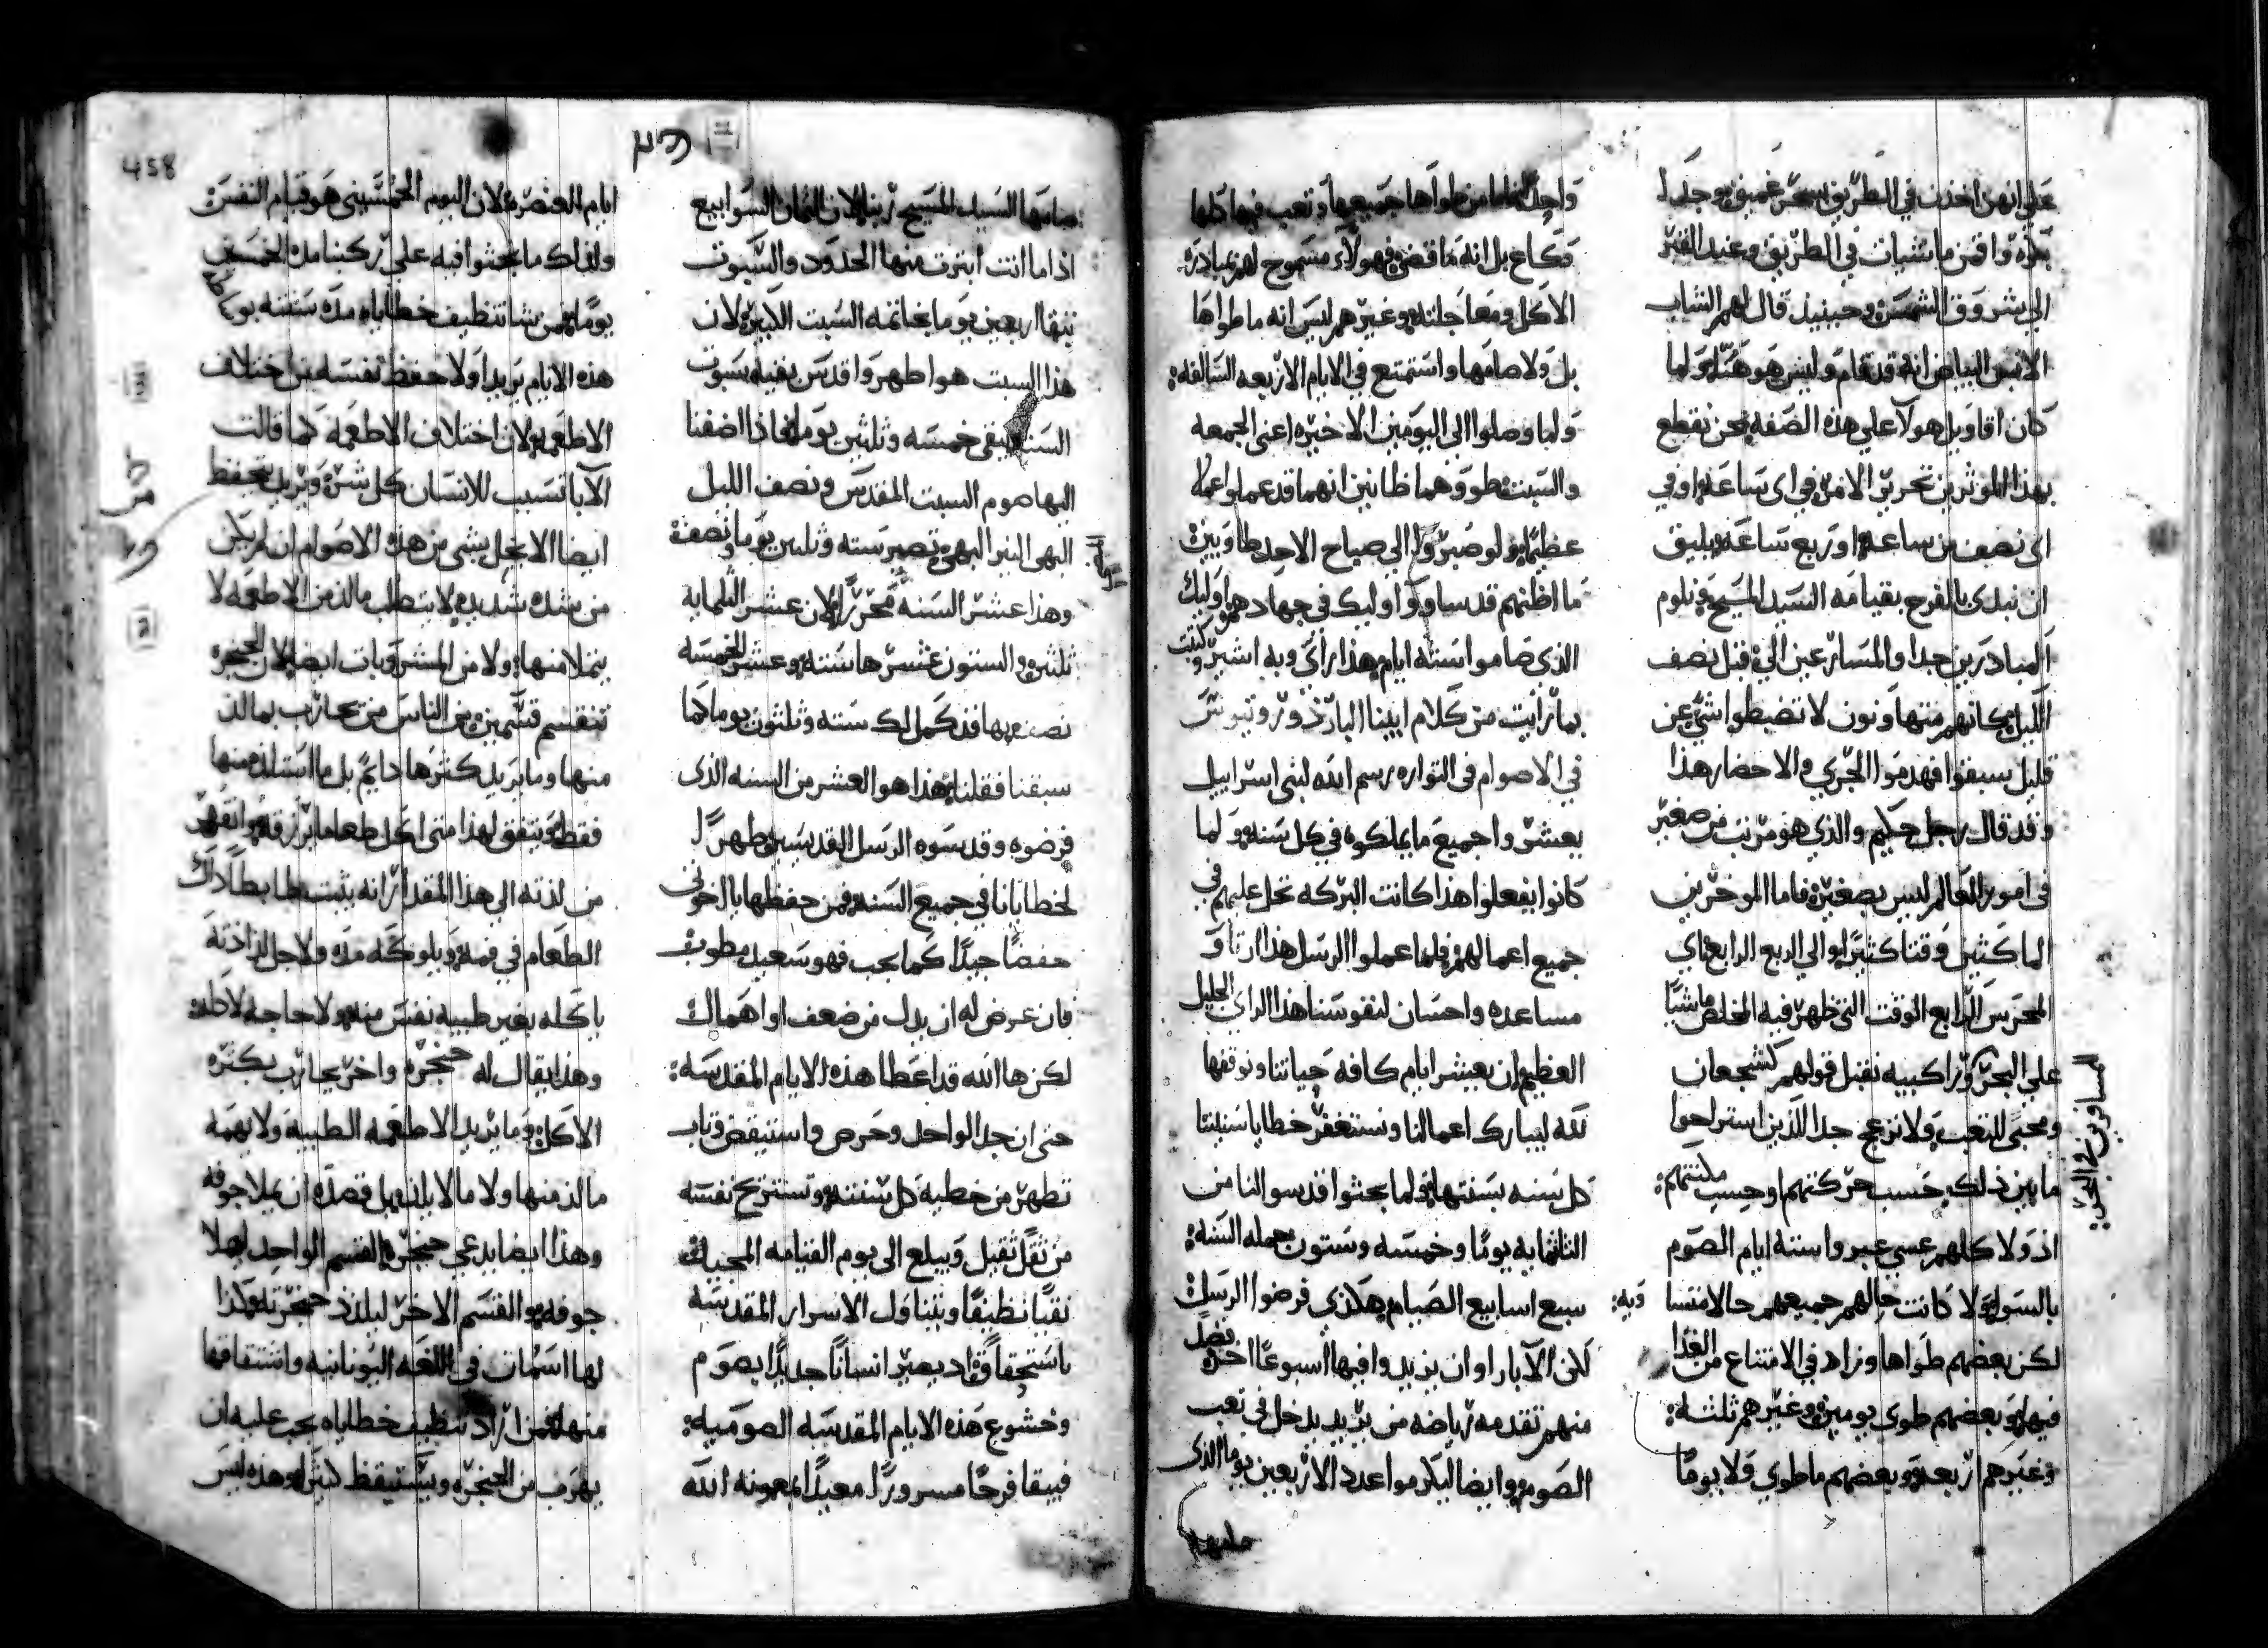 علي انهن اخذن في الطريق سحر عميق جدا
بكره واقمن ماشيات في الطريق وعند القبر
الي شروق الشمس وحينيذ قال لهم الشاب
الابيض انه قد قام وليس هو ههنا ولما
كان اقاويل هولا علي هذه الصفه نحن نقطع
بهذا للموثرين تحرير الامر في اي ساعه او في
اي نصف من ساعه او ربع ساعه يليق
ان نبدي بالفرح بقيامه السيد المسيح ونلوم
المبادرين جدا والمسارعين الي قبل نصف
الليل كانهم متهاونون لا تضبطوا شي عن
قليل سبقوا فهدموا الجري والاحضار هذا
وقد قال رجل حكيم والذي هو مرتب من صغير
في امور العالم ليس بصغيره فاما الموخرين
الماكثين وقتا كثيرا والي الربع الرابع اي
المحرس الرابع الوقت التي ظهر فيه المخلص ماشيا
علي البحر وراكبيه نقبل قولهم كشجعان
ومحبي للتعب ولا نزعج جدا الذين استراحوا
ما بين ذلك حسب حركتهم او حسب مكنتهم
اذ ولا كلهم عسي عبروا سته ايام الصوم
بالسوا ولا كانت حالهم جميعهم حالا متسا
لكن بعضهم طواها وزاد في الامتناع من الغذا
فيها وبعضهم طوي يومين وغيرهم ثلثه
وغيرهم اربعه وبعضهم ما طوي ولا يوما
المسافرين في البحر
ويه
واحدا فاما من طواها جميعها وتعب فيها كلها
وكاع بل انه ما قضي فهولا مسموح لهم بمبادره
الاكل ومعاجلته وغيرهم ليس انه ما طواها
بل ولا صامها واستمتع في الايام الاربعه السالفه
ولما وصلوا الي اليومين الاخيره اعني الجمعه
والسبت طووهما ظانين انهما قد عملوا عملا
عظيما ولو صبروا الي صباح الاحد طاويين
ما اظنهم قد ساووا اوليك في جهادهم اوليك
الذي صاموا سته ايام هذا راي وبه اشير وكتبت
بما رايت من كلام ابينا البار ذوروتيوس
في الاصوام في التواره رسم الله لبني اسراييل
يعشروا جميع ما يملكوه في كل سنه ولما
كانوا يفعلوا هذا كانت البركه تحل عليهم في
جميع اعمالهم فلما عملوا الرسل هذا ارتاوا
مساعده واحسان لنفوسنا هذا الراي الجليل
العظيم ان يعشر ايام كافه حياتنا ونوقفها
لله ليبارك اعمالنا ونستغفر خطايا سنتنا
كل سنه بسنتها فلما بحثوا قدسوا لنا من
الثلثمايه يوما وخمسه وستون جمله السنه
سبع اسابيع الصيام هكذي فرضوا الرسل
لكن الابا راوا ان يزيدوا فيها اسبوعا اخر فضل
منهم تقدمه رياضه من يريد يدخل في تعب
الصوم وايضا ليكرموا عدد الاربعين يوما الذي
صامها
صامها السيد المسيح ربنا لان الثمان السوابيع
اذا ما انت ابترت منها الحدود والسبوت
يبقا اربعين يوما بخاتمه السبت الكبير لان
هذا السبت هو اطهر واقدس بقيه سبوت
السنه يبقي خمسه وثلثين يوما فاذا اضفنا
اليها صوم السبت المقدس ونصف الليل
البهي النير البهي تصير سته وثلثين يوما ونصف
وهذا عشر السنه محررا لان عشر الثلمايه
ثلثين والستون عشرها سته وعشر الخمسه
نصف فها قد كمل لك سته وثلثون يوما كما
سبقنا فقلنا هذا هو العشر من السنه الذي
فرضوه وقدسوه الرسل القديسين طهرا
لخطايانا في جميع السنه فمن حفظها يا اخوتي
حفضا جيدا كما يجب فهو سعيد مطوب
فان عرض له ان يدل من ضعف او اهمال
لكن ها الله قد اعطا هذه الايام المقدسه
حتي ان جد الواحد وحرص واستيقض وتاب
تطهر من خطيه كل سنته وتستريح نفسه
من ثقل ثقيل ويبلغ الي يوم القيامه المجيده
نقيا نظيفا ويتناول الاسرار المقدسه
باستحقاق اذ يصير انسانا جديدا بصوم
وخشوع هذه الايام المقدسه الصوميه
فيبقا فرحا مسرورا معيدا لمعونه الله
458
ايام العنصره لان اليوم الخمسيني هو قيام النفس
ولذلك ما نجثوا فيه علي ركبنا مده الخمسين
يوما فمن شا تنظيف خطاياه مده سنته بو
هذه الايام يريد اولا حفظ نفسه من اختلاف
الاطعمه لان اختلاف الاطعمه كما قالت
الابا تسبب للانسان كل شر ويريد تحفظ
ايضا الا يحل بشي من هذه الاصوام ان لم يكن
من شده شديده لا يتطلب مالذ من الاطعمه لا
يتملا منها ولا من المشروبات ايضا لان الحنجره
تنقسم قسمين من الناس من يحارب بمالذ
منها وما يريد كثرها دايم بل ما استلذ منها
فقط ويتفق لهذا متي اكل طعاما يرزقه وانقهر
من لذته الي هذا المقدار انه يثبت ضابطا ذاك
الطعام في فمه ويلوكه مده ولاجل لذاذته
ياكله بغير طيبه نفس منه ولا حاجه لاكله
وهذا يقال له حنجره واخر يحارب بكثره
الاكل وما يريد الاطعمه الطيبه ولا يهمه
مالذ منها ولا ما لا يلذ بل قصده ان يملا جوفه
وهذا ايضا يدعي حنجره القسم الواحد يملا
جوفه والقسم الاخر ليلذذ حنجرته وكذا
لها اسمات في اللغه اليونانيه واشتقاقها
منها فمن اراد تنظيف خطاياه يجب عليه ان
يهرب من الحنجره ويستيقظ كثيرا وهذه ليس